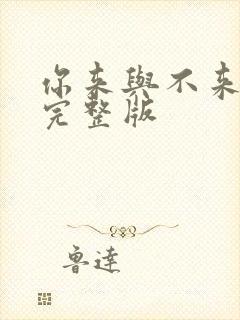 你来與不来
完整版
鲁達